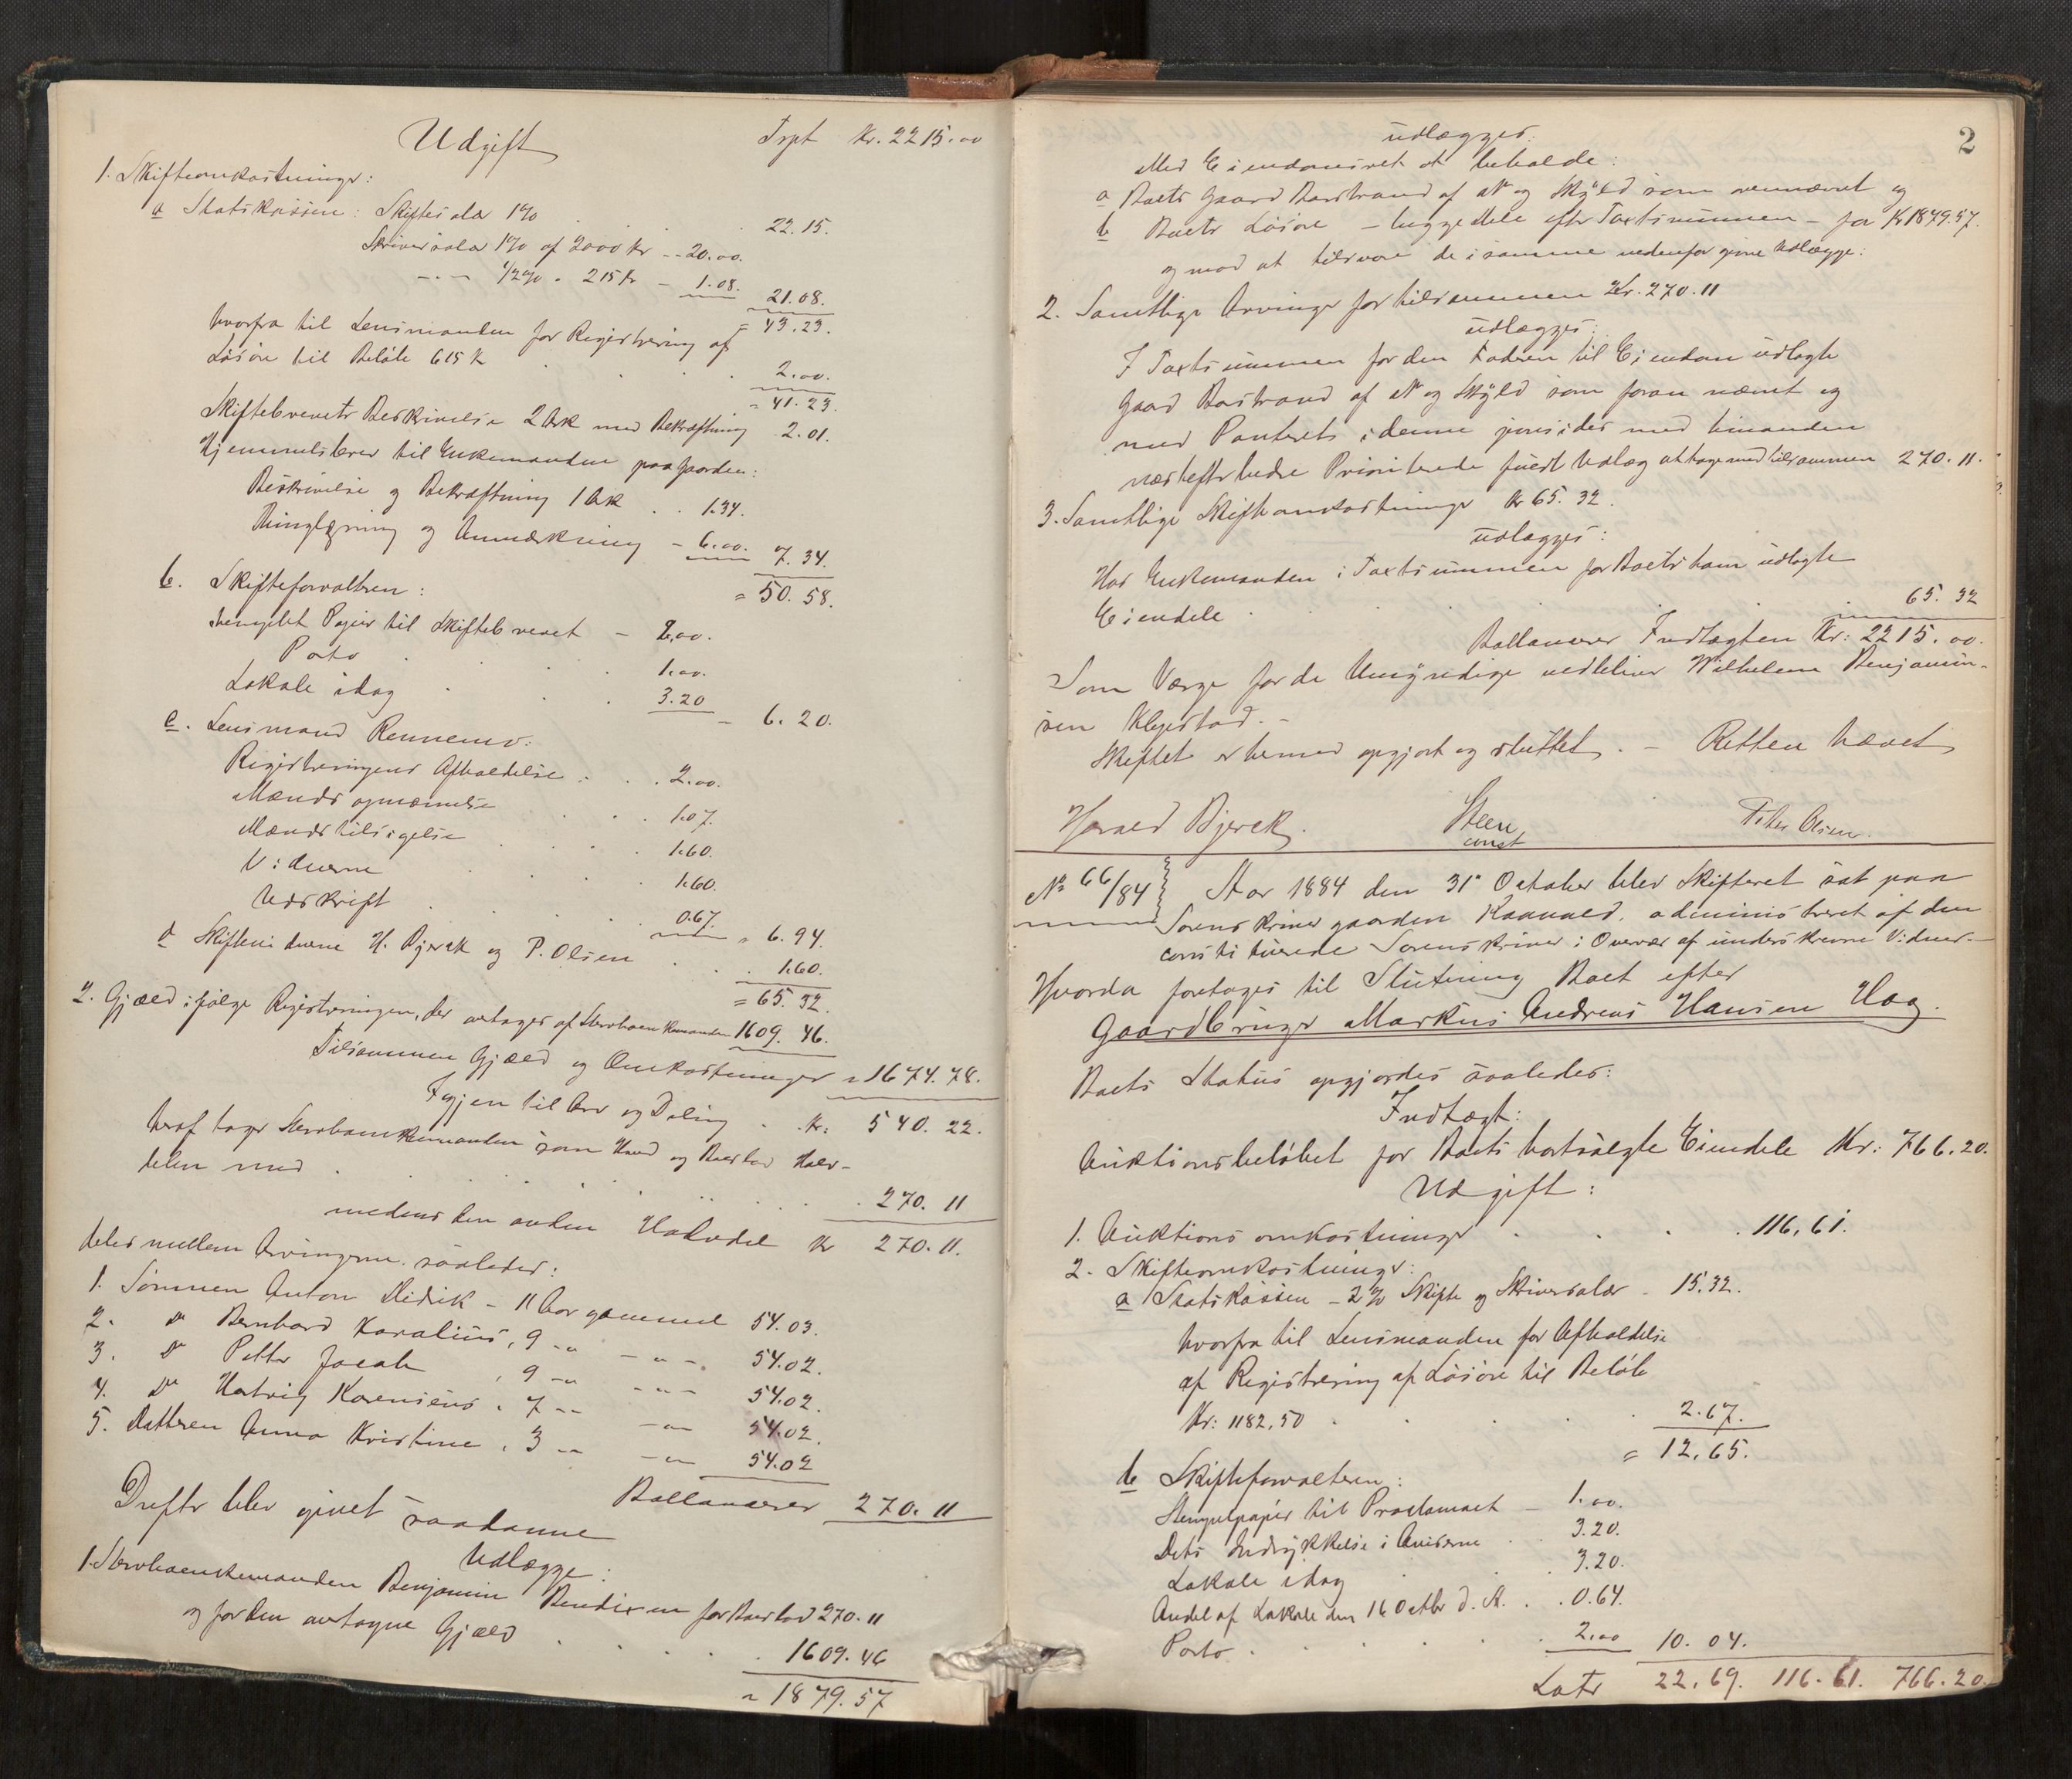 Udgift Trpt Kr. 2215.00
1. Skifteomkostninger:
a Statskassen: Skiftesalær 1% 22.15.
Skriversalær 1% af 2000 Kr - 20.00.
-"- ½% " 215 Kr - 1.08. 21.08.
= 43.23.
hvorfra til Lensmanden for Registrering af
Løsøre til Beløb 615 K 2.00.
= 41.23.
Skiftebrevets Beskrivelse 2 Ark med Bekræftning 2.01.
Hjemmelsbrev til Enkemanden paa Gaarden:
Beskrivelse og Bekræftning 1 Ark . . 1.34.
Thinglæsning og Anmærkning - 6.00. 7.34.
= 50.58.
b. Skifteforvalteren:
stemplet Papir til Skiftebrevet - 2.00.
Porto 1.00.
Lokale idag 3.20 - 6.20.
c. Lensmand Rennemo:
Registreringens Afholdelse . . 2.00.
Mænds opnævnelse 1.07.
Mænds tilsigelse 1.60.
Vidnerne 1.60.
Udskrift 0.67. " 6.94.
d Skiftevidnerne H. Bjerck og P. Olsen 1.60.
= 65.32.
2. Gjæld ifølge Registreringen, der overtages af Stervboenkemanden 1609.46.
Tilsammen Gjæld og Omkostninger " 1674.78.
Igjen til Arv og Deling . Kr: 540.22.
heraf tager Stervboenkemanden som Hand og Boeslod Halv-
delen med . 270.11
medens den anden Halvdel Kr 270.11.
deles mellem Arvingerne saaledes:
1. Sønnen Anton Didrik - 11 Aar gammel 54.03.
2. Do Bernhard Karalius, 9 -"- -"- 54.02.
3. Do Petter Jacob , 9 -"- -"- 54.02.
4. Do Hartvig Korensius , 7 -"- -"- 54.02.
5. Datteren Anna Kristine , 3 -"- -"- 54.02
Ballancerer 270.11
Derefter blev givet saadanne
Udlægge:
1. Stervboenkemanden Benjamin Bendixen for Boeslod 270.11
og for den overtagne Gjæld . 1609.46
" 1879.57
2
udlægges:
Med Eiendomsret at beholde:
a Boets Gaard Barstrand af No og Skyld som ovennævnt og
b Boets Løsøre - beggedele efter Taxtsummen - for Kr 1879.57.
og mod at tilsvare de i samme nedenfor givne Udlægge:
2. Samtlige Arvinger for tilsammen Kr. 270.11
udlægges:
I Taxtsummen for den Faderen til Eiendom udlagte
Gaard Barstrand af No og Skyld som foran nævnt og
med Panteret i denne jevnsides med hinanden
næstefter bedre Prioriterede fuldt Udlæg at tage med tilsammen 270.11.
3. Samtlige Skifteomkostninger Kr 65.32.
udlægges:
Hos Enkemanden i Taxtsummen for Boets ham udlagte
Eiendele . 65.32
Ballancerer Indtægten Kr: 2215.00.
Som Værge for de Umyndige vedbliver Wilhelm Benjamin-
sen Klegstad. -
Skiftet er hermed opgjort og sluttet. - Retten hævet
Harald Bjerck. Steen Peter Olsen.
const
No 66/84 Aar 1884 den 31te October blev Skifteret sat paa
Sorenskrivergaarden Kaavald, administreret af den
constituerede Sorenskriver i Overvær af underskrevne Vidner. -
Hvorda foretoges til Slutning Boet efter
Gaardbruger Markus Andreas Hansen Hag.
Boets Status opgjordes saaledes:
Indtægt:
Auktionsbeløbet for Boets bortsolgte Eiendele Kr: 766.20.
Udgift:
1. Auktionsomkostninger . . . . 116,61.
2. Skifteomkostninger:
a Statskassen - 2% Skifte og Skriversalær - 15.32.
hvorfra til Lensmanden for Afholdelse
af Registrering af Løsøre til Beløb
Kr: 1182,50 . 2.67.
= 12,65.
b Skifteforvalteren:
Stempelpapir til Proclamaet - 1.00.
Dets Indrykkelse i Aviserne . 3.20.
Lokale idag . 3.20.
Andel af Lokale den 16 Octbr d. A. . . 0.64.
Porto . 2.00 10.04.
Latr 22,69. 116.61. 766.20.